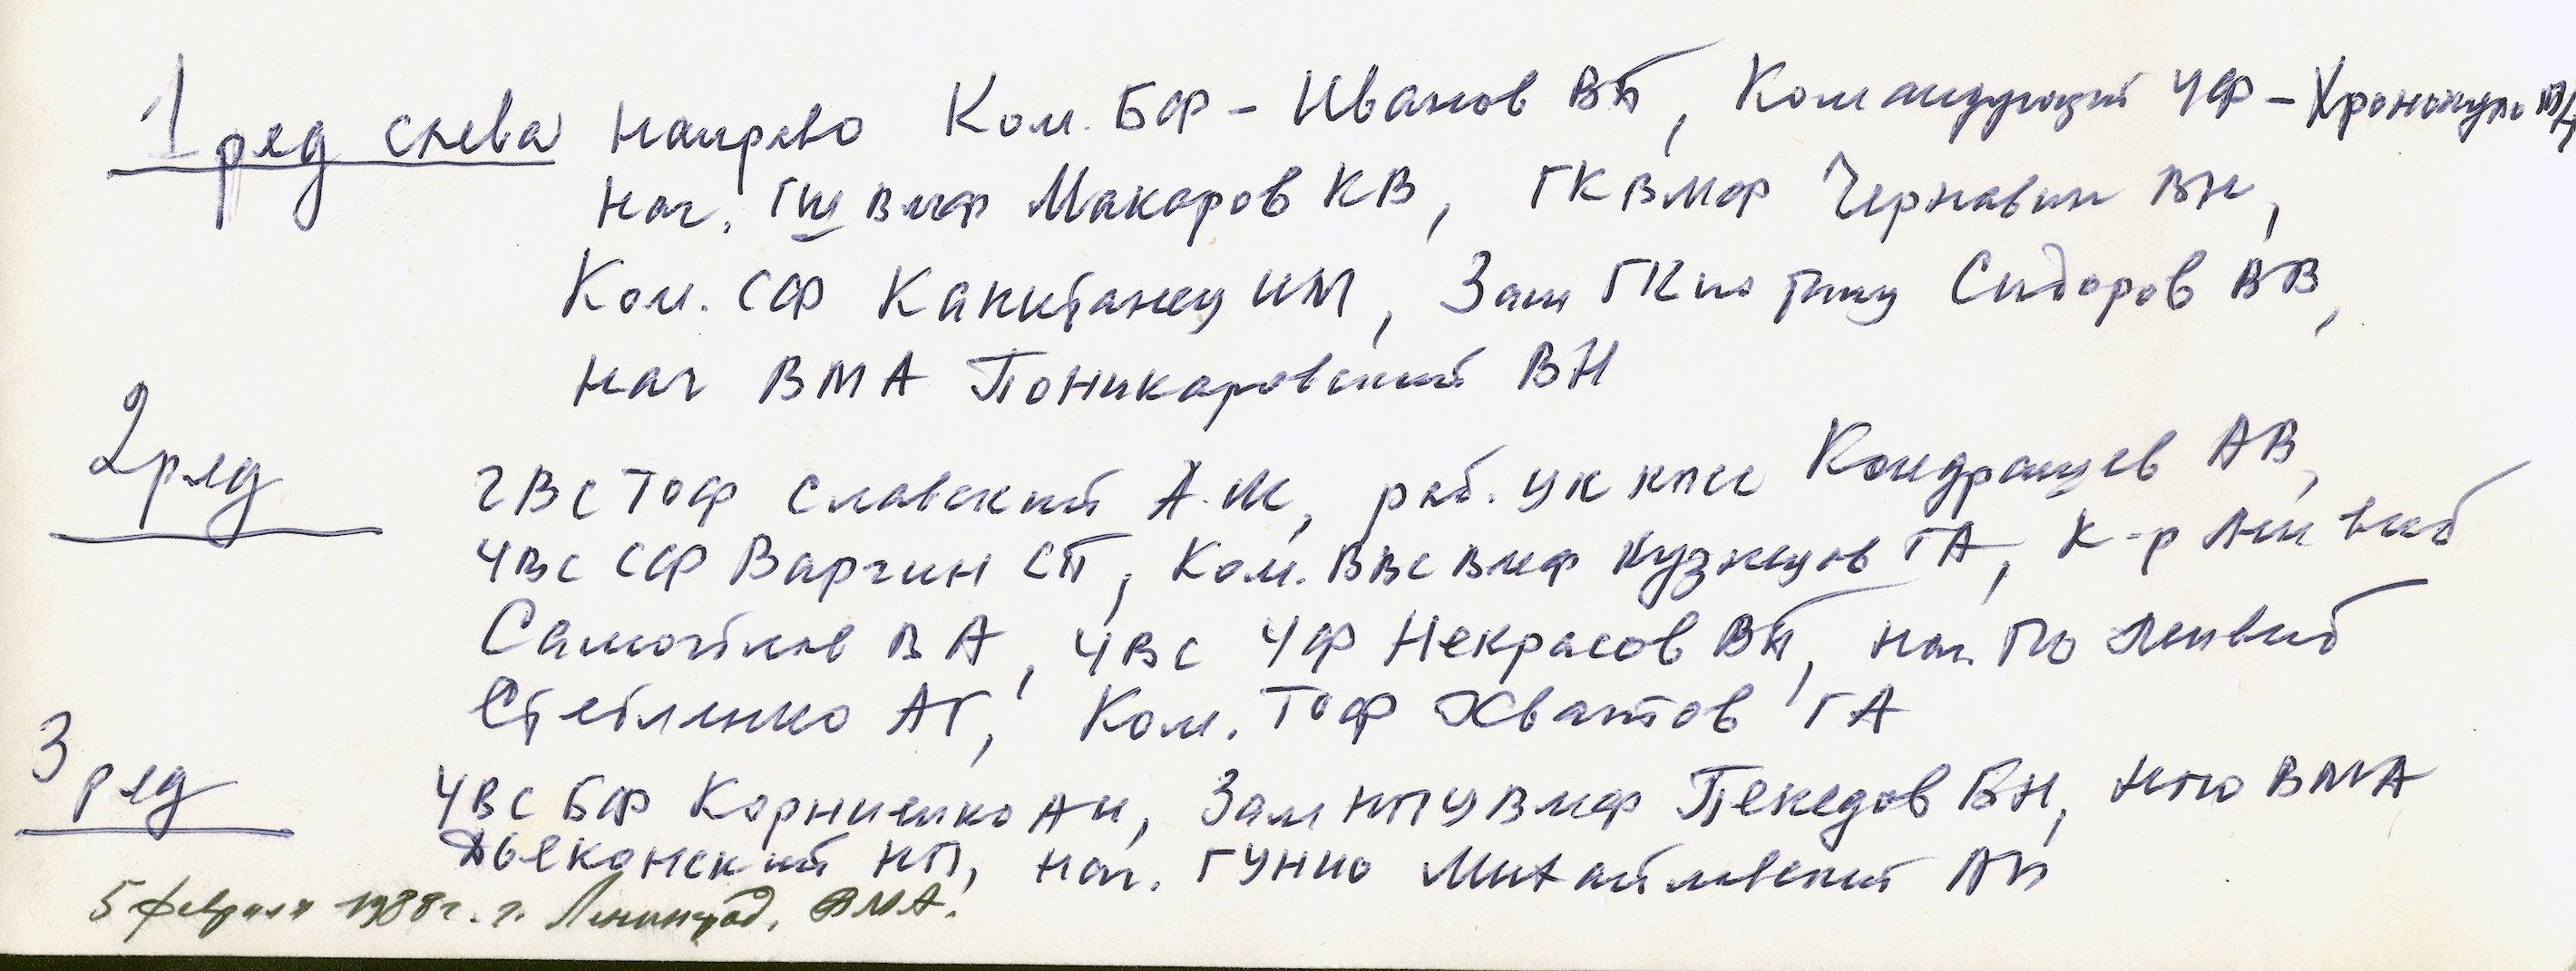 1 ряд слева направо Ком. БФ - Иванов ВП, Командующий ЧФ - Хронопуло МН
нач. ГШ ВМФ Макаров КВ, ГК ВМФ Чернавин ВН,
Ком. СФ Капитанец ИМ, Зам ГК по тылу Сидоров ВВ,
нач ВМА Поникаровский ВН
2 ряд ЧВС ТОФ Славский А.М, раб. ЦК КПСС Кондрашев АВ,
ЧВС СФ Варгин СП, Ком. ВВС ВМФ Кузнецов ГА, К-р Лен ВМБ
Самойлов ВА, ЧВС ЧФ Некрасов ВП, нач. ПО ЛенВМБ
Стебленко АГ, Ком. ТОФ Хватов ГА
3 ряд ЧВС БФ Корниенко АИ, Зам НПУ ВМФ Пекедов БН, НПО ВМА
Дьяконский НП, нач. ГУНИО Михайловский АП
5 февраля 1988 г. г. Ленинград, ВМА.